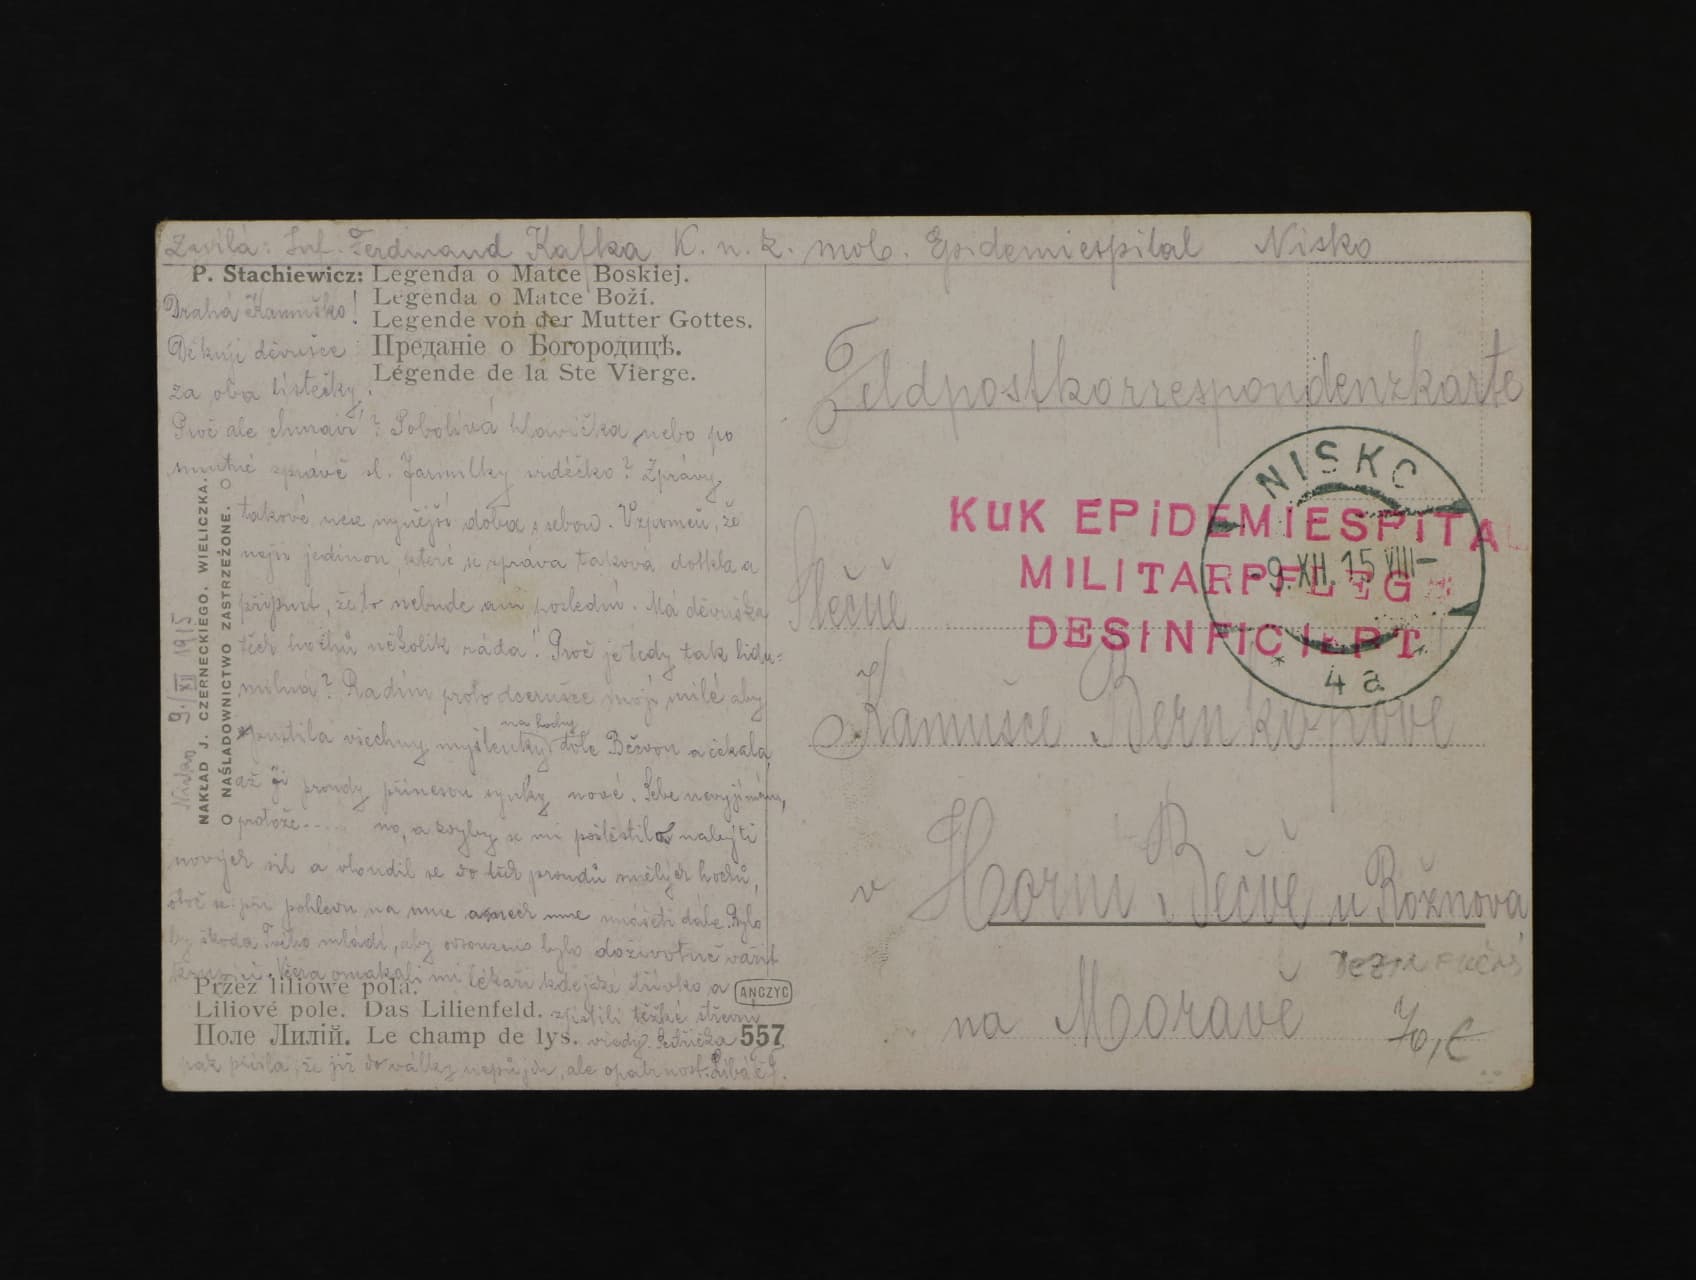 Inf. Ferdinand Kafka K. u. k. mob. Epidemiespital Nisko
P. Stachiewicz: Legenda o Matce Boskiej.
Legenda o Matce Boží.
Legende von der Mutter Gottes.
Преданіе о Богородицѣ.
Légende de la Ste Vierge.
Drahá Kamuško!
Děkuji děvušce
za oba lístečky.
Proč ale chmaví? Pobolívá hlavička nebo po
smutné zprávě sl. Jarmilky srdéčko? Zprávy
takové nese nynější doba s sebou. Vzpomeň, že
nejsi jedinou, které se zpráva taková dotkla a
připusť, že to nebude ani poslední. Má děvuška
těch hochů několik ráda! Proč je tedy tak
Radím proto dcerušce mojí milé aby
pustila všechny myšlenky na hochy dole Bečvou a čekala
až jí proudy přinesou nové. Sebe nevyjímám,
protože..... no, a kdyby se mi poštěstilo nalejti
novýc​h sil a vloudil se do těch proudů smělých hochů,
otoč se při pohledu na mne a nech mne unášeti dále. Bylo
by škoda Tvého mládí, aby odsouzeno bylo doživotně vářit
Včera omakali mi lékaři kdejaké střívko a
zjistili těžké střevní
vady. Sestřička
pak přišla, že již do války nepůjdu, ale opatrnost. Líbá
Nisko 9./XII 1915
NAKŁAD J. CZERNECKIEGO. WIELICZKA.
O NAŚLADOWNICTWO ZASTRZEŻONE. O
Przez liliowe pola.
Liliové pole. Das Lilienfeld.
Поле Лилій. Le champ de lys.
ANCZYC
557
Feldpostkorrespondenzkarte
NISKO
9. XII. 15 VIII
* 4a
KUK EPIDEMIESPITAL
MILITARPFLEG
DESINFICIERT
Slečně
Kamušce Bernkopové
v Horní Bečvě u Rožnova
na Moravě